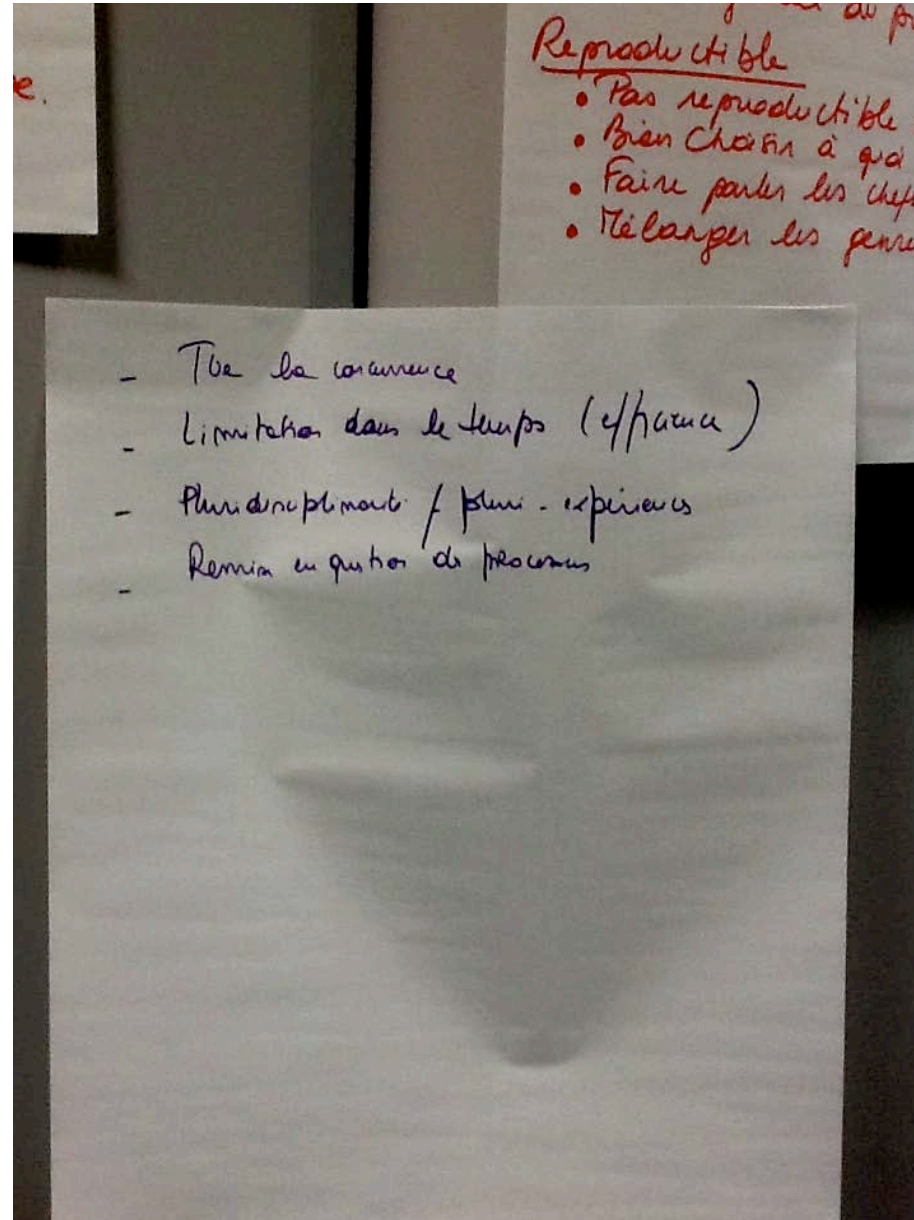 e.
du pr
Reproductible
• Pas reproductible
• Bien Choisir à quoi
• Faire parler les chefs
• Mélanger les genre
- Tue la concurrence
- Limitation dans le temps (efficience)
- Pluridisciplinarité / pluri-expériences
- Remise en question des processus